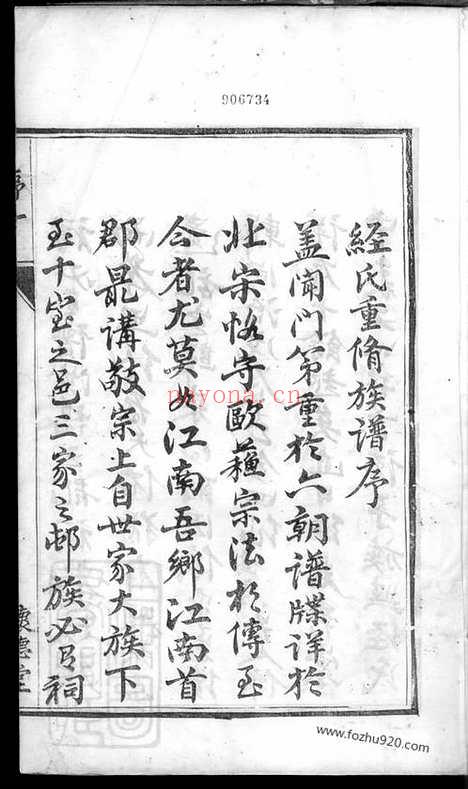 906734
經氏重脩族譜序
蓋聞門第重於六朝譜牒詳於
北宋恪守歐蘇宗法於傳至
今者尤莫如江南吾鄉江南首
郡最講敬宗上自世家大族下
至十室之邑三家之邨族必有祠
序一
懷德堂
nayona.cn
www.fozhu920.com